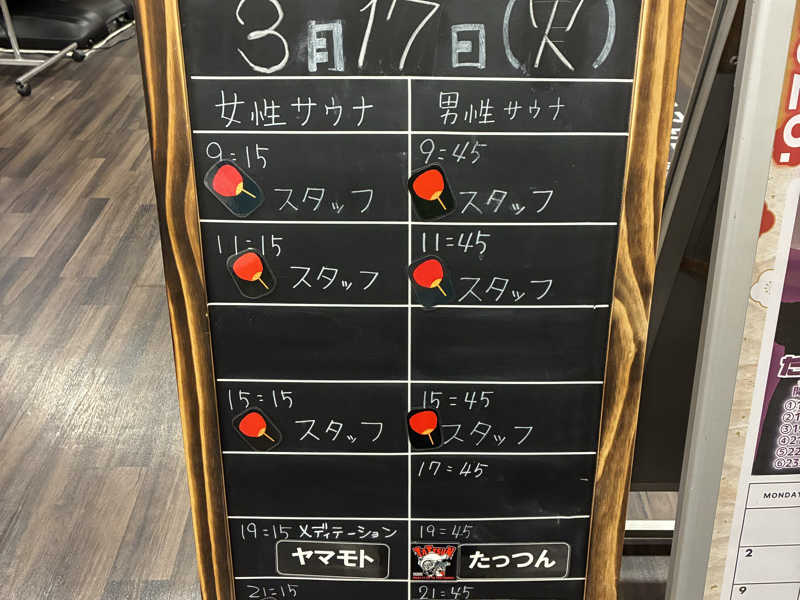 3月17日(火)
女性サウナ 男性サウナ
9:15 9:45
スタッフ スタッフ
11:15 11:45
スタッフ スタッフ
15:15 15:45
スタッフ スタッフ
17:45
19:15 メディテーション 19:45
ヤマモト たっつん
21:15 21:45
MONDAY
2
9